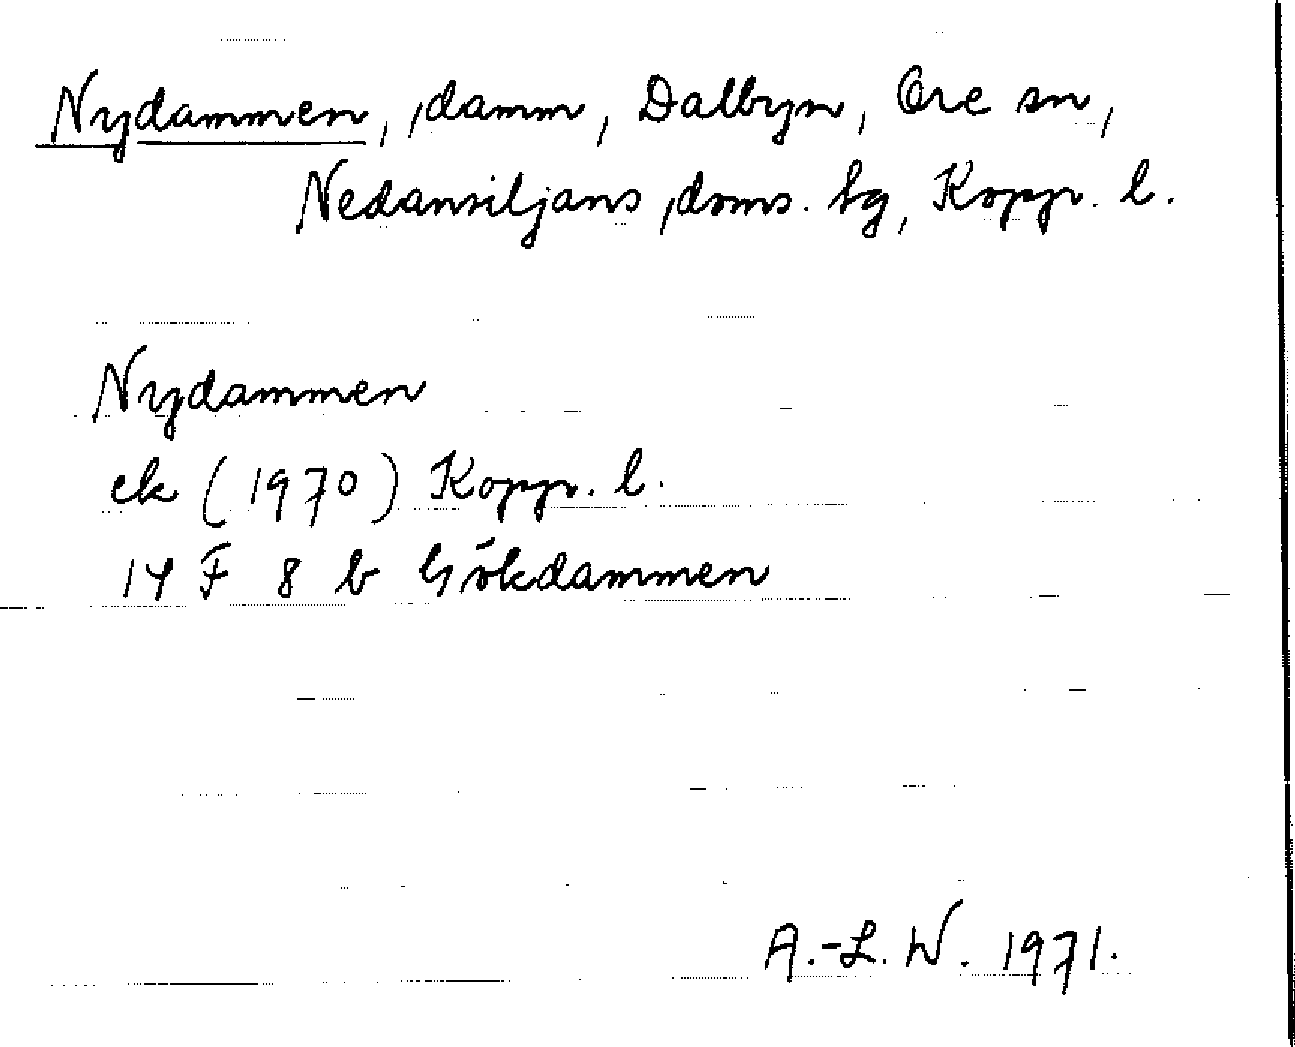 Nydammen, damm, Dalbyn, Ore sn,
Nedansiljans doms. hg, Kopp. l.
Nydammen
ek (1970) Kopp. l.
14 F 8 b Gökdammen
A.-L. W. 1971.